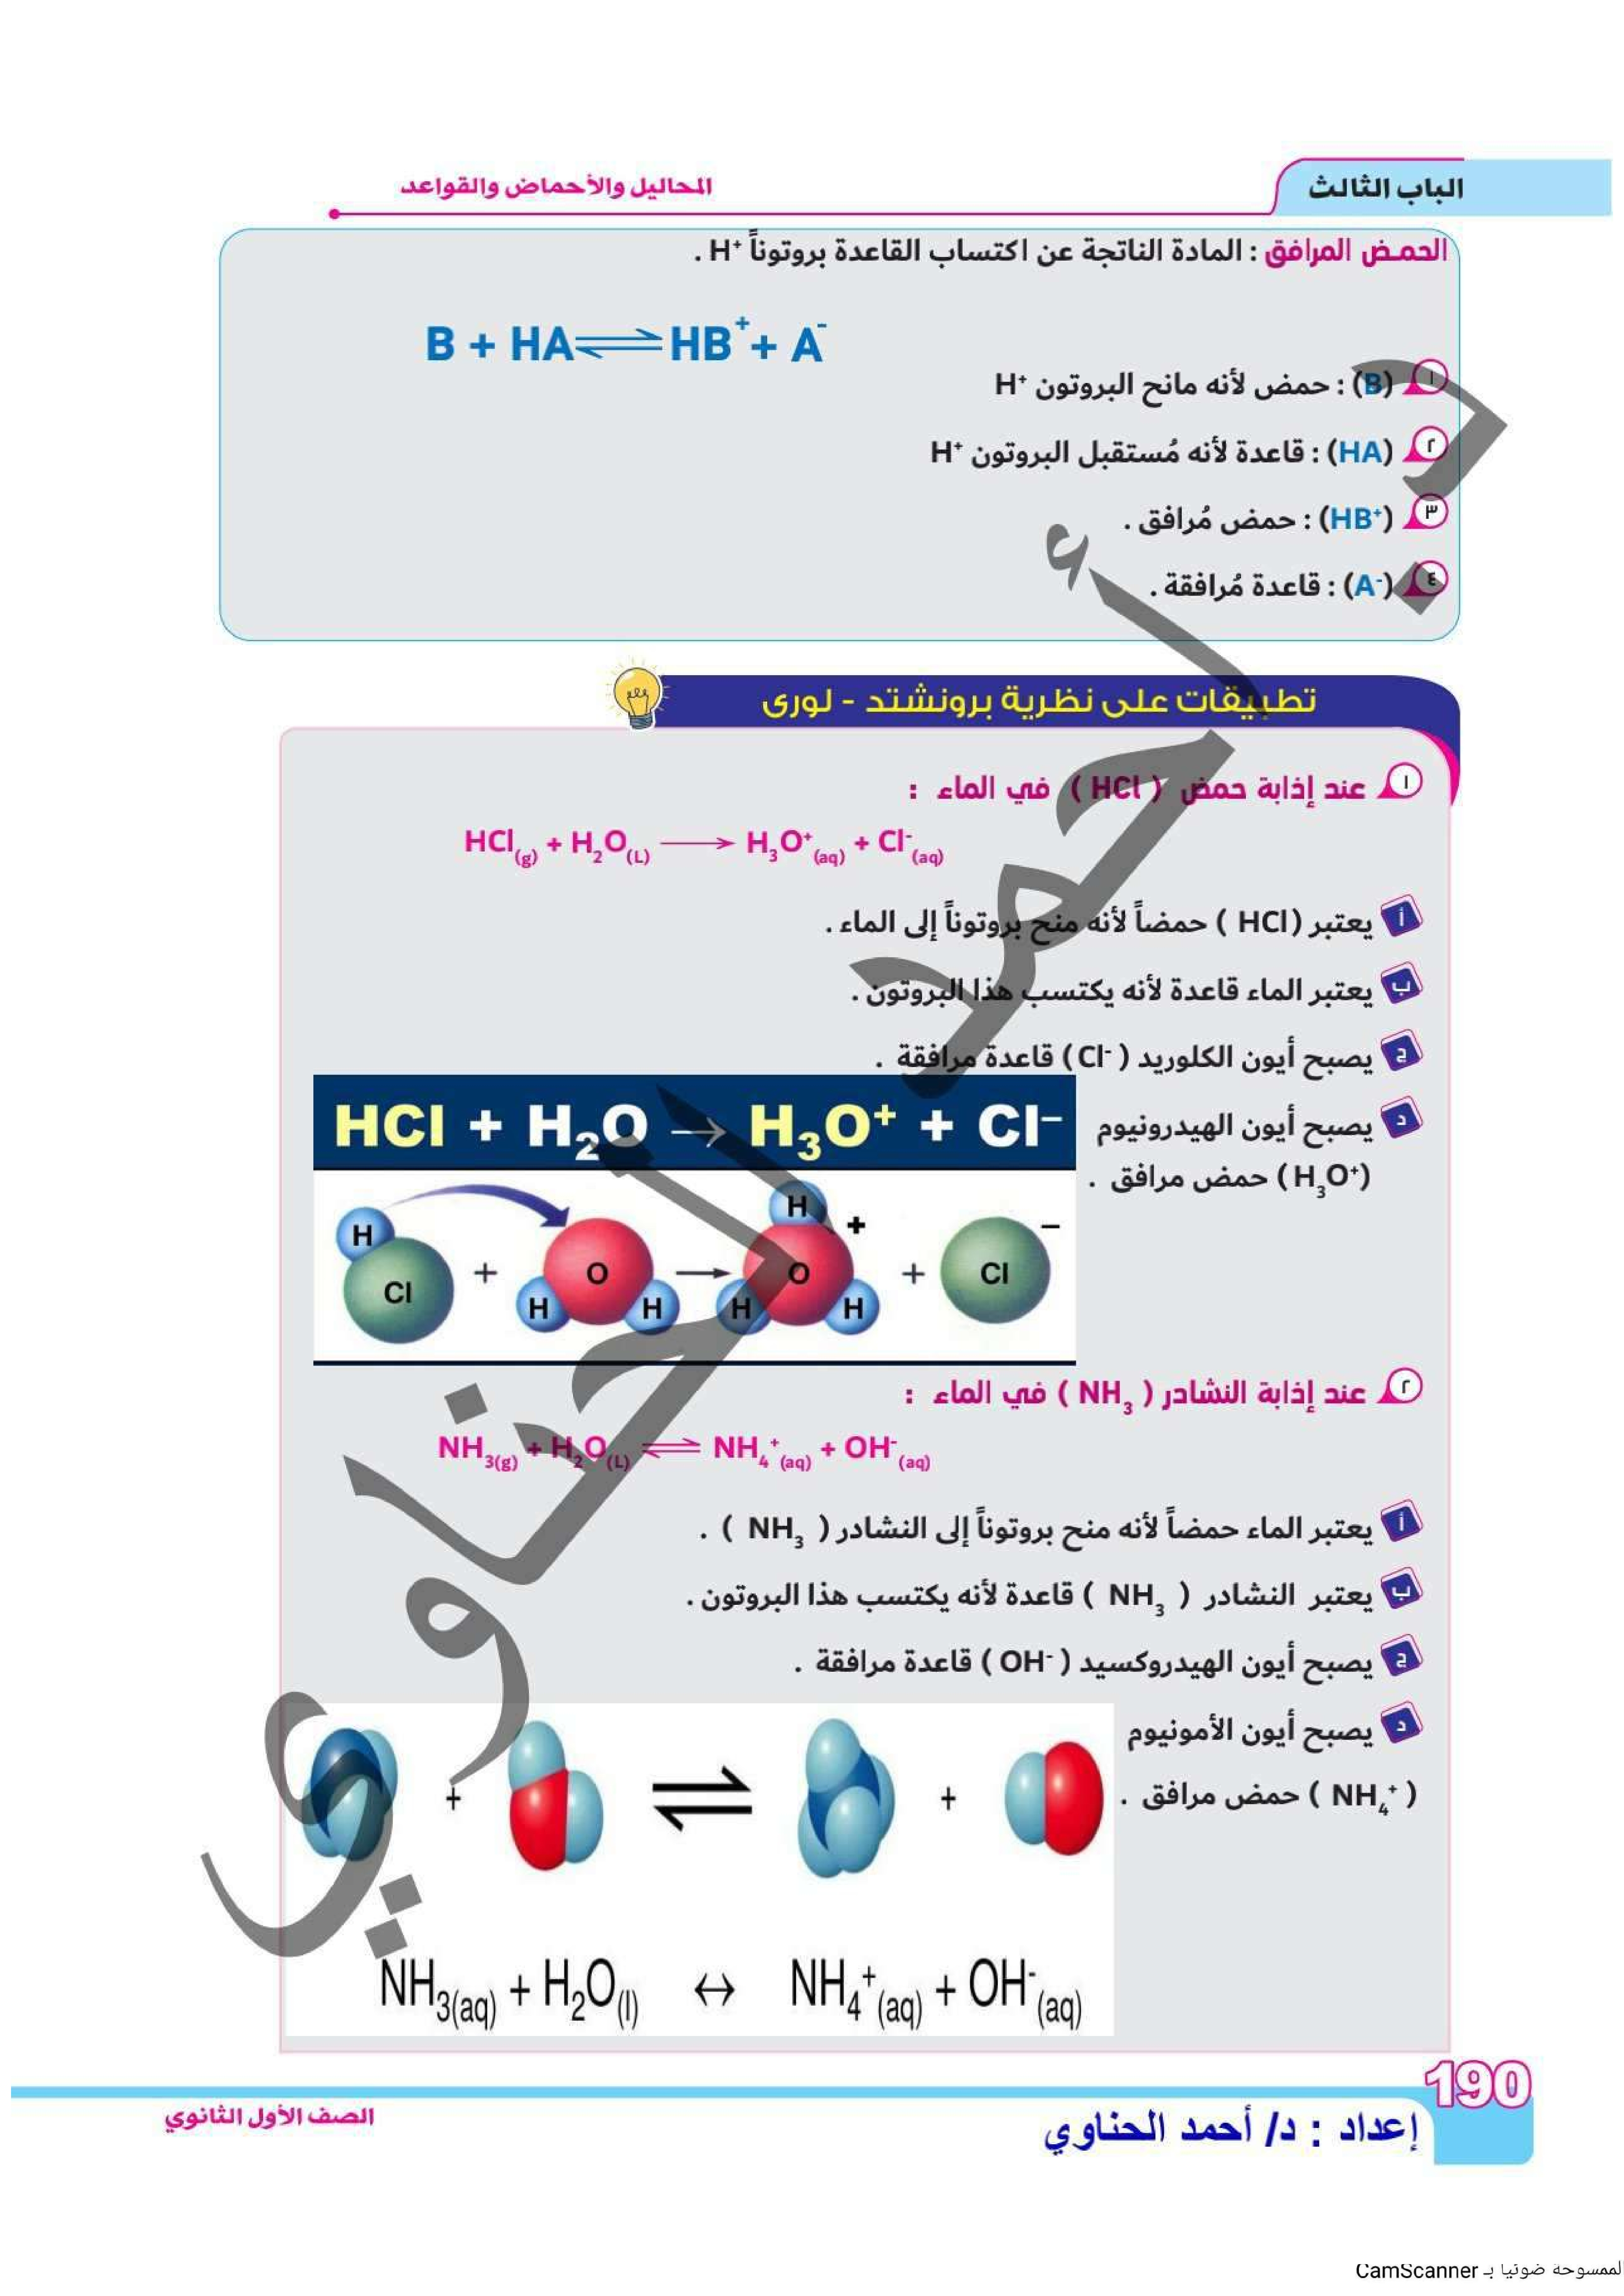 الباب الثالث
المحاليل والأحماض والقواعد
الحمض المرافق : المادة الناتجة عن اكتساب القاعدة بروتوناً H⁺ .
B + HA ⇌ HB⁺ + A⁻
١ (B) : حمض لأنه مانح البروتون H⁺
٢ (HA) : قاعدة لأنه مُستقبل البروتون H⁺
٣ (HB⁺) : حمض مُرافق .
٤ (A⁻) : قاعدة مُرافقة .
تطبيقات على نظرية برونشتد - لورى
١ عند إذابة حمض ( HCl ) في الماء :
HCl(g) + H₂O(L) ⟶ H₃O⁺(aq) + Cl⁻(aq)
أ يعتبر (HCl ) حمضاً لأنه منح بروتوناً إلى الماء .
ب يعتبر الماء قاعدة لأنه يكتسب هذا البروتون .
ج يصبح أيون الكلوريد ( Cl⁻ ) قاعدة مرافقة .
د يصبح أيون الهيدرونيوم
(H₃O⁺ ) حمض مرافق .
HCl + H₂O → H₃O⁺ + Cl⁻
H Cl + O H H → H O H H + + Cl −
٢ عند إذابة النشادر ( NH₃ ) في الماء :
NH₃(g) + H₂O(L) ⇌ NH₄⁺(aq) + OH⁻(aq)
أ يعتبر الماء حمضاً لأنه منح بروتوناً إلى النشادر ( NH₃ ) .
ب يعتبر النشادر ( NH₃ ) قاعدة لأنه يكتسب هذا البروتون .
ج يصبح أيون الهيدروكسيد ( OH⁻ ) قاعدة مرافقة .
د يصبح أيون الأمونيوم
( NH₄⁺ ) حمض مرافق .
+ ⇌ +
NH₃(aq) + H₂O(l) ↔ NH₄⁺(aq) + OH⁻(aq)
د. أحمد الحناوي
190
إعداد : د/ أحمد الحناوي
الصف الأول الثانوي
الممسوحة ضوئيا بـ CamScanner